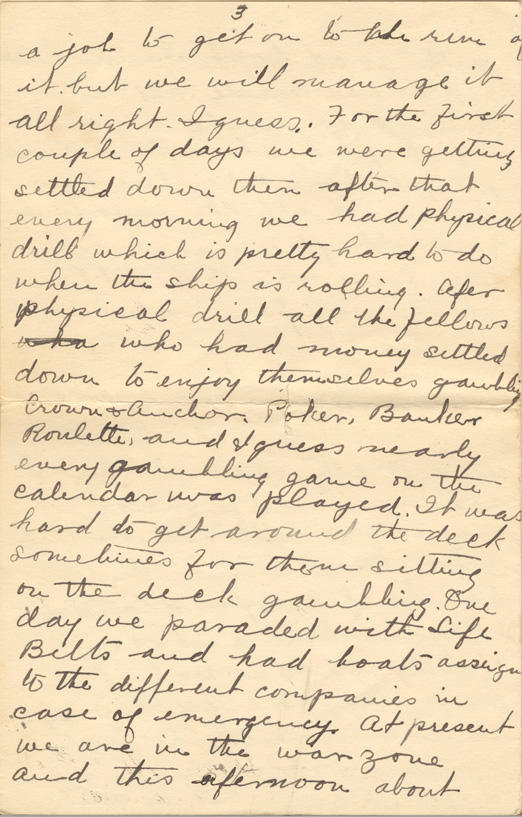 3
a job to get on to the run of
it. but we will manage it
all right. I guess. For the first
couple of days we were getting
settled down then after that
every morning we had physical
drill which is pretty hard to do
when the ship is rolling. Afer
physical drill all the fellows
who had money settled
down to enjoy themselves gambling
Crown & Anchor. Poker, Banker
Roulette, and I guess nearly
every gambling game on the
calendar was played. It was
hard to get around the deck
sometimes for them sitting
on the deck gambling. One
day we paraded with Life
Belts and had boats assign
to the different companies in
case of emergency. At present
we are in the war zone
and this afernoon about